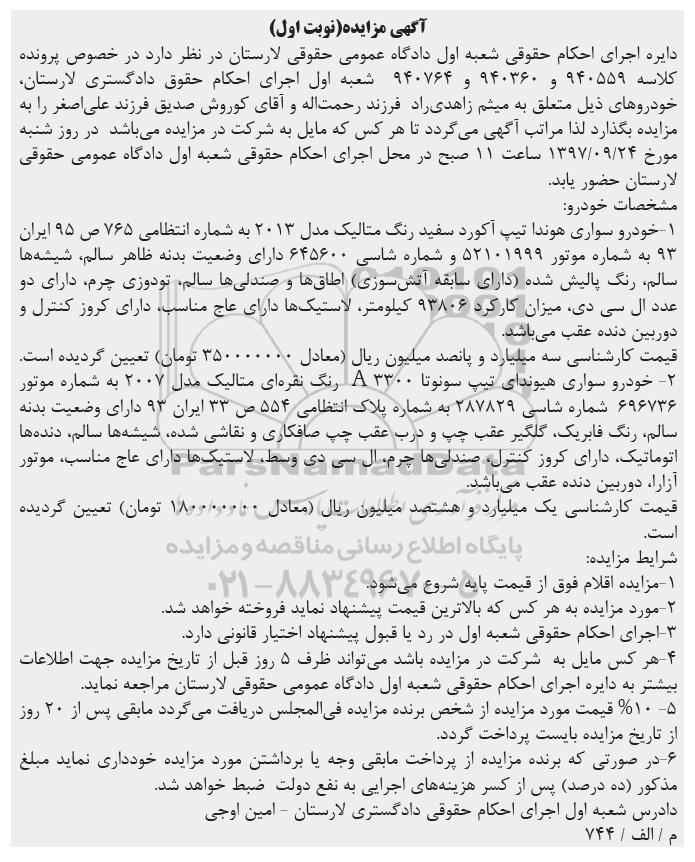 آگهی مزایده(نوبت اول)
دایره اجرای احکام حقوقی شعبه اول دادگاه عمومی حقوقی لارستان در نظر دارد در خصوص پرونده
کلاسه ۹۴۰۵۵۹ و ۹۴۰۳۶۰ و ۹۴۰۷۶۴ شعبه اول اجرای احکام حقوق دادگستری لارستان،
خودروهای ذیل متعلق به میثم زاهدی‌راد فرزند رحمت‌اله و آقای کوروش صدیق فرزند علی‌اصغر را به
مزایده بگذارد لذا مراتب آگهی می‌گردد تا هر کس که مایل به شرکت در مزایده می‌باشد در روز شنبه
مورخ ۱۳۹۷/۰۹/۲۴ ساعت ۱۱ صبح در محل اجرای احکام حقوقی شعبه اول دادگاه عمومی حقوقی
لارستان حضور یابد.
مشخصات خودرو:
۱-خودرو سواری هوندا تیپ آکورد سفید رنگ متالیک مدل ۲۰۱۳ به شماره انتظامی ۷۶۵ ص ۹۵ ایران
۹۳ به شماره موتور ۵۲۱۰۱۹۹۹ و شماره شاسی ۶۴۵۶۰۰ دارای وضعیت بدنه ظاهر سالم، شیشه‌ها
سالم، رنگ پالیش شده (دارای سابقه آتش‌سوزی) اطاق‌ها و صندلی‌ها سالم، تودوزی چرم، دارای دو
عدد ال سی دی، میزان کارکرد ۹۳۸۰۶ کیلومتر، لاستیک‌ها دارای عاج مناسب، دارای کروز کنترل و
دوربین دنده عقب می‌باشد.
قیمت کارشناسی سه میلیارد و پانصد میلیون ریال (معادل ۳۵۰۰۰۰۰۰۰ تومان) تعیین گردیده است.
۲- خودرو سواری هیوندای تیپ سوناتا A ۳۳۰۰ رنگ نقره‌ای متالیک مدل ۲۰۰۷ به شماره موتور
۶۹۶۷۳۶ شماره شاسی ۲۸۷۸۲۹ به شماره پلاک انتظامی ۵۵۴ ص ۳۳ ایران ۹۳ دارای وضعیت بدنه
سالم، رنگ فابریک، گلگیر عقب چپ و درب عقب چپ صافکاری و نقاشی شده، شیشه‌ها سالم، دنده‌ها
اتوماتیک، دارای کروز کنترل، صندلی‌ها چرم، ال سی دی وسط، لاستیک‌ها دارای عاج مناسب، موتور
آزارا، دوربین دنده عقب می‌باشد.
قیمت کارشناسی یک میلیارد و هشتصد میلیون ریال (معادل ۱۸۰۰۰۰۰۰۰ تومان) تعیین گردیده
است.
شرایط مزایده:
۱-مزایده اقلام فوق از قیمت پایه شروع می‌شود.
۲-مورد مزایده به هر کس که بالاترین قیمت پیشنهاد نماید فروخته خواهد شد.
۳-اجرای احکام حقوقی شعبه اول در رد یا قبول پیشنهاد اختیار قانونی دارد.
۴-هر کس مایل به شرکت در مزایده باشد می‌تواند ظرف ۵ روز قبل از تاریخ مزایده جهت اطلاعات
بیشتر به دایره اجرای احکام حقوقی شعبه اول دادگاه عمومی حقوقی لارستان مراجعه نماید.
۵- ۱۰% قیمت مورد مزایده از شخص برنده مزایده فی‌المجلس دریافت می‌گردد مابقی پس از ۲۰ روز
از تاریخ مزایده بایست پرداخت گردد.
۶-در صورتی که برنده مزایده از پرداخت مابقی وجه یا برداشتن مورد مزایده خودداری نماید مبلغ
مذکور (ده درصد) پس از کسر هزینه‌های اجرایی به نفع دولت ضبط خواهد شد.
دادرس شعبه اول اجرای احکام حقوقی دادگستری لارستان - امین اوجی
م / الف / ۷۴۴
ParsNamadData
پایگاه اطلاع رسانی مناقصه و مزایده
۰۲۱-۸۸۳۴۹۶۷۰-۵